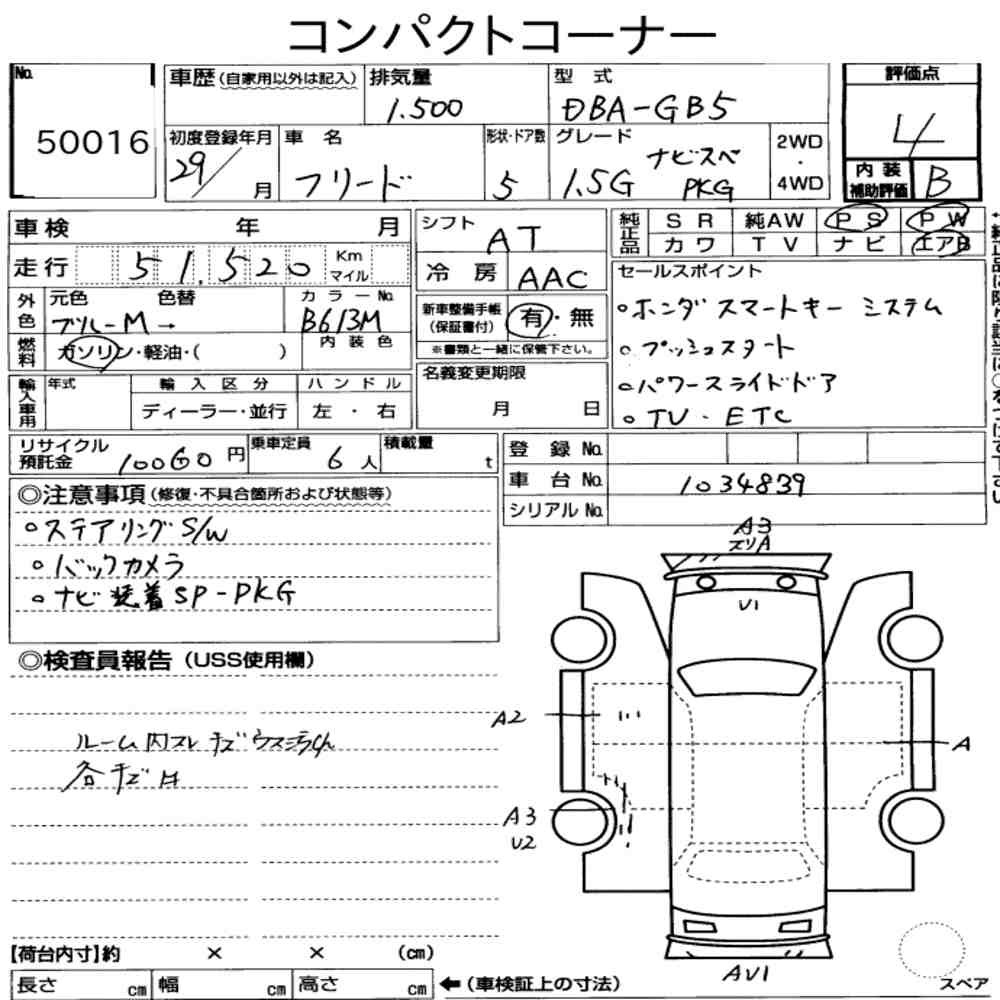 コンパクトコーナー
No.
50016
車歴(自家用以外は記入)
排気量
1.500
型 式
DBA-GB5
評価点
4
初度登録年月
29/ 月
車 名
フリード
形状・ドア数
5
グレード
1.5G ナビスペ PKG
2WD
・
4WD
内 装
補助評価
B
車検 年 月
走行 51,520 Km マイル
シフト
AT
冷 房
AAC
純正品
S R 純AW P S P W
カ ワ T V ナ ビ エアB
外色
元色 色替
ブルーM→
カ ラ ー No.
B613M
燃料
ガソリン・軽油・( )
内 装 色
新車整備手帳
(保証書付)
有・無
※書類と一緒に保管下さい。
セールスポイント
○ホンダ スマートキー システム
○プッシュスタート
○パワースライドドア
○TV・ETC
輸入車用
年式
輸 入 区 分
ディーラー・並行
ハ ン ド ル
左 ・ 右
名義変更期限
月 日
リサイクル
預託金
10060円
乗車定員
6人
積載量
t
登 録 No.
車 台 No.
1034839
シリアル No.
◎注意事項(修復・不具合箇所および状態等)
○ステアリングS/W
○バックカメラ
○ナビ装着SP-PKG
◎検査員報告(USS使用欄)
ルーム内スレ キズ
各キズ
A3
スリA
U1
A2
A
A3
U2
AU1
スペア
【荷台内寸】約 × × (cm)
長さ cm 幅 cm 高さ cm
←(車検証上の寸法)